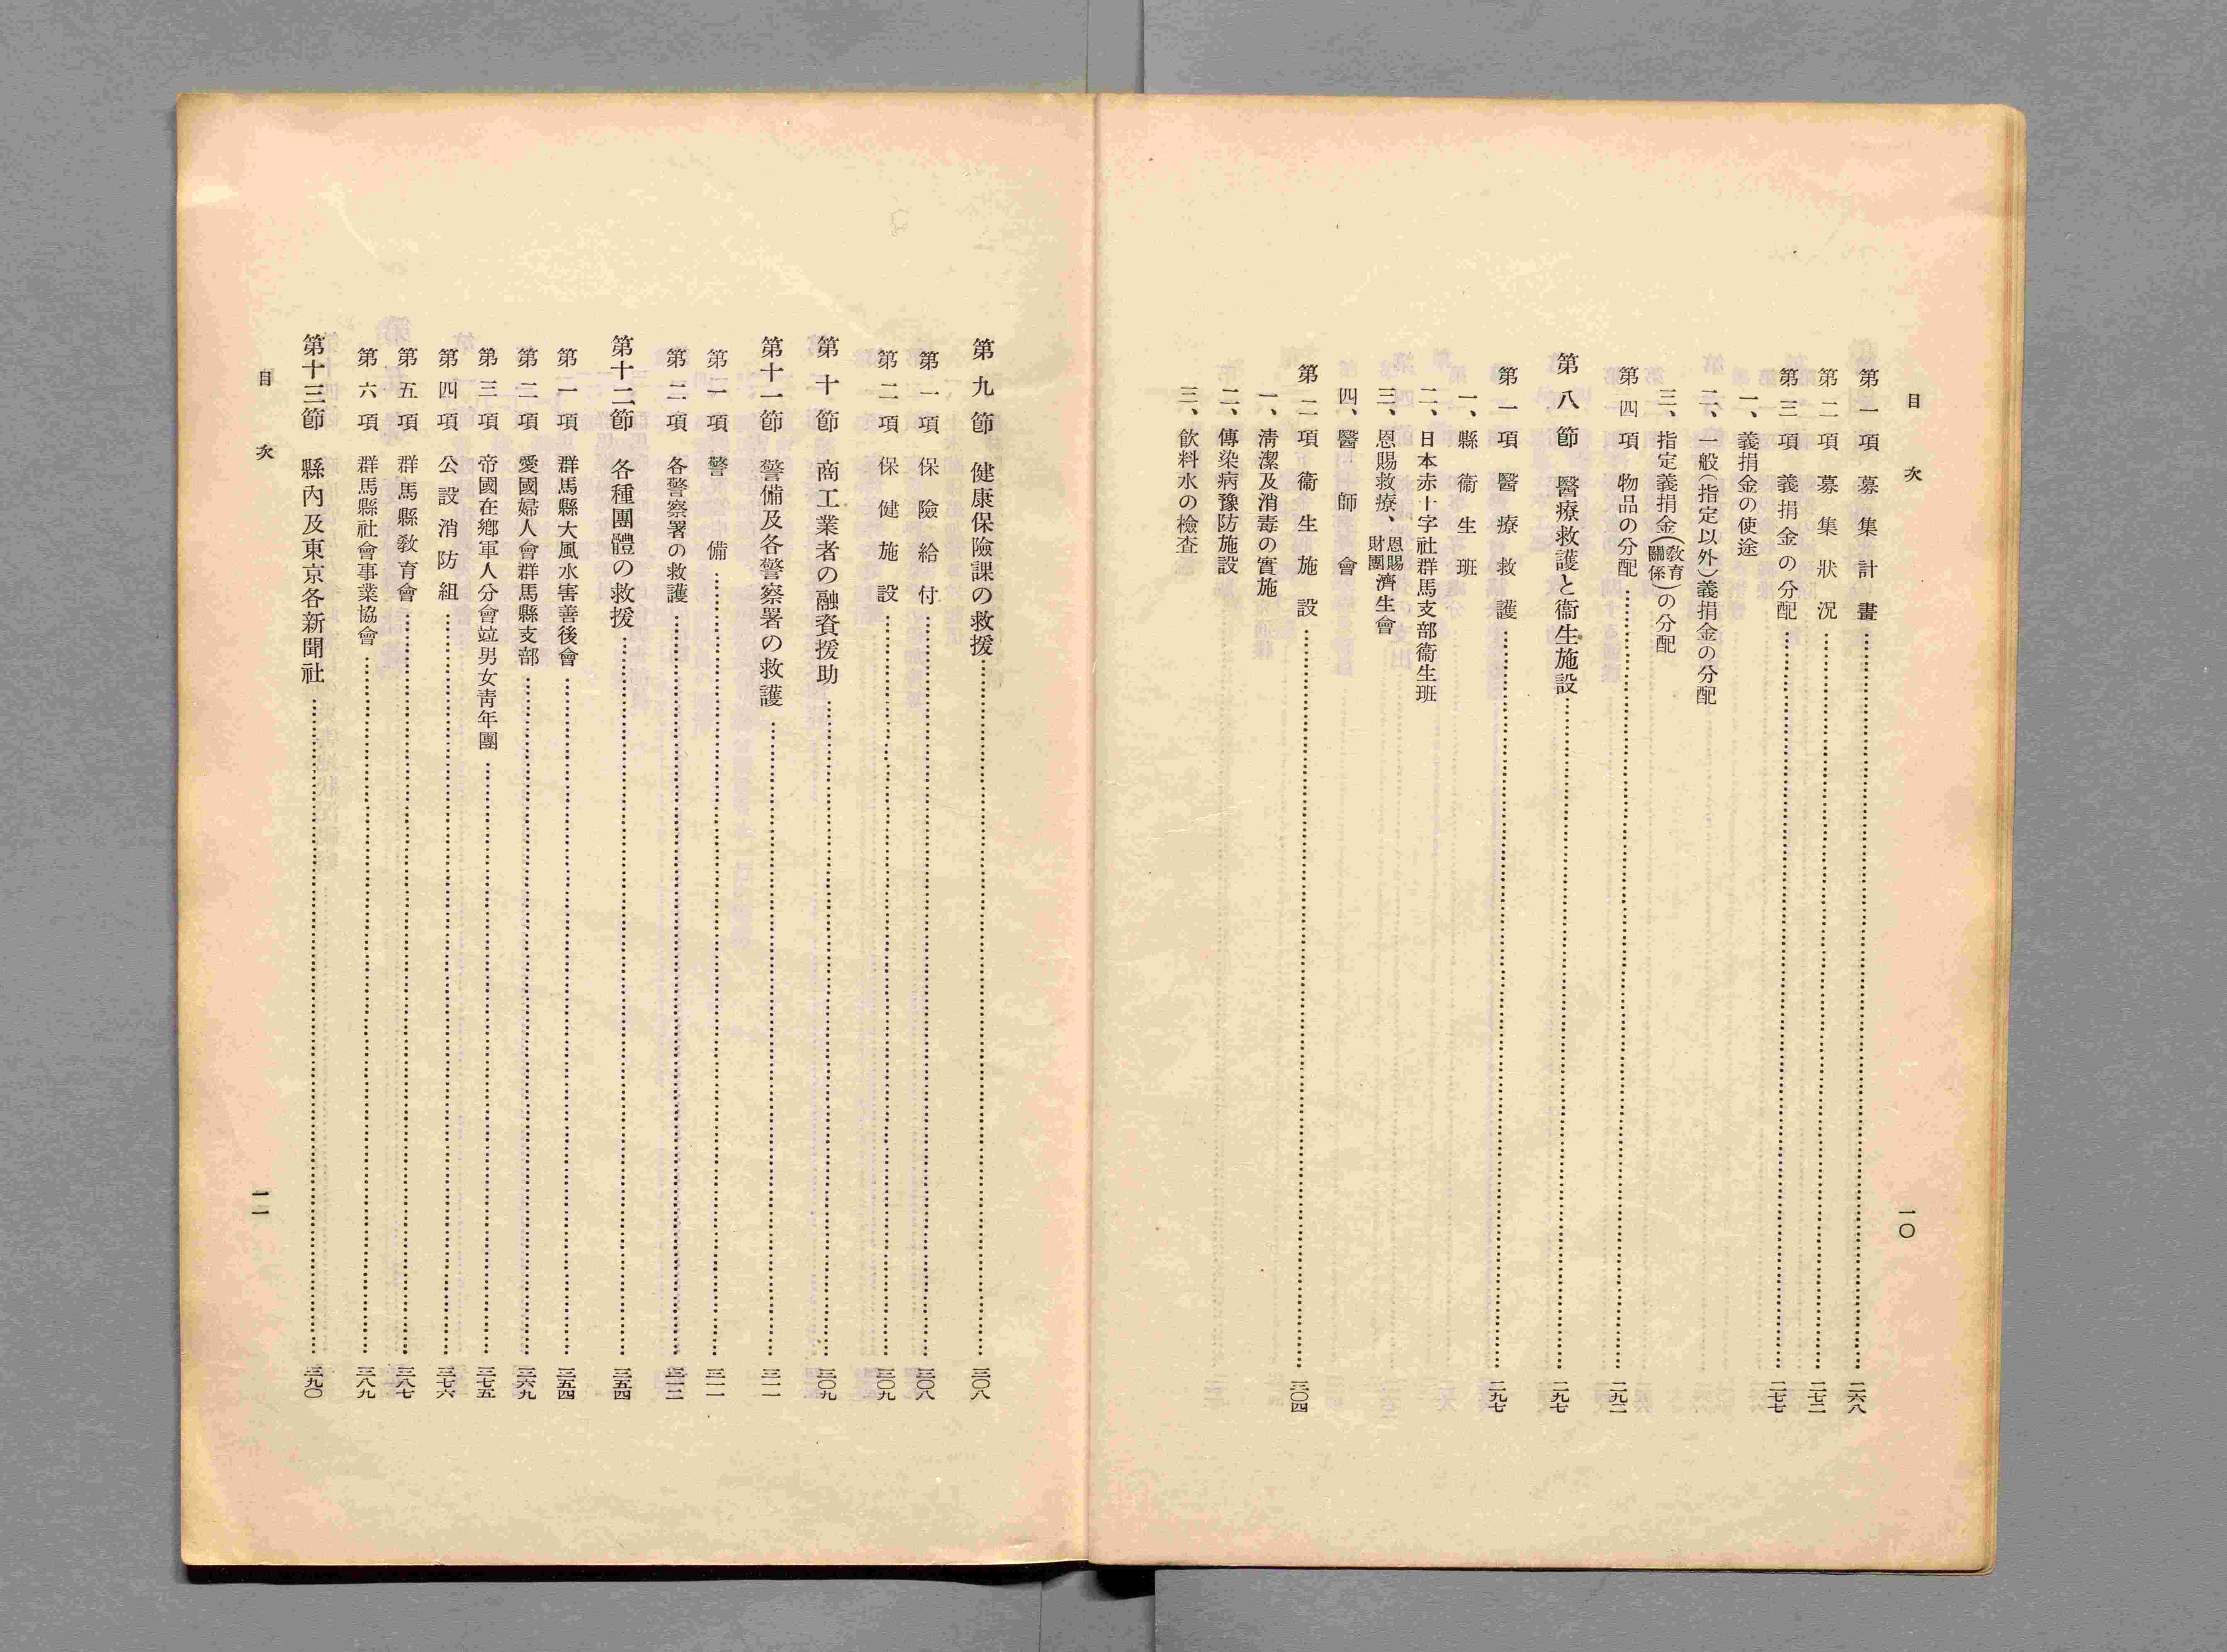 目次
一〇
第一項 募集計畫……二六八
第二項 募集狀況……二七二
第三項 義捐金の分配……二七七
一、義捐金の使途
二、一般(指定以外)義捐金の分配
三、指定義捐金(敎育關係)の分配
第四項 物品の分配……二九二
第八節 醫療救護と衞生施設……二九七
第一項 醫療救護……二九七
一、縣衞生班
二、日本赤十字社群馬支部衞生班
三、恩賜救療、恩賜財團濟生會
四、醫師會
第二項 衞生施設……三〇四
一、淸潔及消毒の實施
二、傳染病豫防施設
三、飮料水の檢査
第九節 健康保險課の救援……三〇八
第一項 保險給付……三〇八
第二項 保健施設……三〇九
第十節 商工業者の融資援助……三〇九
第十一節 警備及各警察署の救護……三一一
第一項 警備……三一一
第二項 各警察署の救護……三一三
第十二節 各種團體の救援……三五四
第一項 群馬縣大風水害善後會……三五四
第二項 愛國婦人會群馬縣支部……三六九
第三項 帝國在鄕軍人分會竝男女靑年團……三七五
第四項 公設消防組……三七六
第五項 群馬縣敎育會……三八七
第六項 群馬縣社會事業協會……三八九
第十三節 縣內及東京各新聞社……三九〇
目次
一一